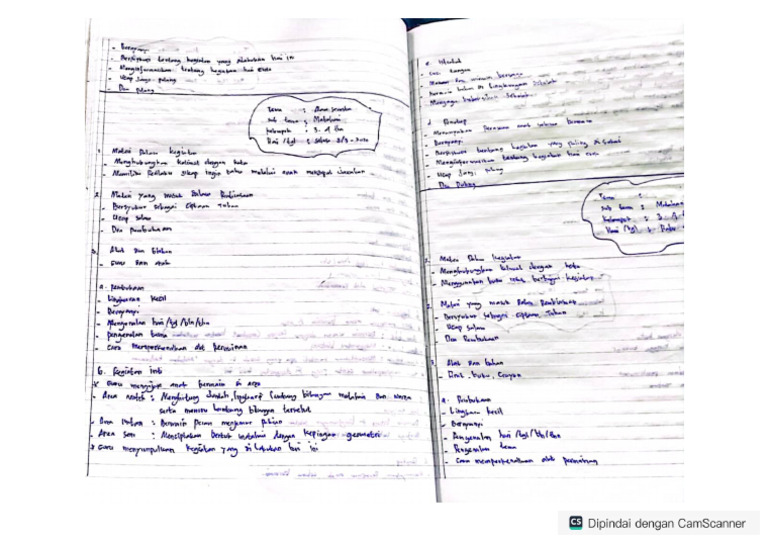 - Bernyanyi
- Berdiskusi tentang kegiatan yang dilakukan hari ini
- Menginformasikan tentang kegiatan hari esok
- Ucap janji pulang
- Doa pulang
Tema :
Sub tema : Makanan
Kelompok : 3-4 thn
Hari /tgl : Selasa
1. Materi Dalam kegiatan
- Menghubungkan kalimat dengan kata
- Memiliki Perilaku sikap kerja
2. Materi yang masuk dalam Pembiasaan
- Bersyukur sebagai Ciptaan Tuhan
- Ucap salam
- Doa pembukaan
3. Alat dan bahan
- Guru dan anak
a. Pembukaan
- Lingkaran kecil
- Bernyanyi
- Mengenalkan hari/tgl/bln/thn
- pengenalan tema
- Cara memperkenalkan alat permainan
b. Kegiatan inti
* Guru mengajak anak bermain di area
- Area Math : Menghitung Jumlah, lambang bilangan
serta meniru lambang bilangan tersebut
- Area Drama : Bermain Peran
- Area Seni : Menciptakan bentuk dengan kepingan geometri
* Guru menyampaikan kegiatan yang di lakukan hari ini
c. Istirahat
- Cuci tangan
- Makan dan minum bersama
- Bermain bebas di lingkungan sekolah
d. Penutup
- Menanyakan Perasaan anak selama bermain
- Bernyanyi
- Berdiskusi tentang kegiatan yang paling di sukai
- Menginformasikan tentang kegiatan hari esok
- Ucap Janji pulang
- Doa Pulang
Tema :
Sub tema : Makanan
Kelompok : 3-4
Hari /tgl : Rabu
1. Materi Dalam kegiatan
- Menghubungkan kalimat dengan kata
- Menggunakan buku untuk berbagai kegiatan
2. Materi yang masuk dalam Pembiasaan
- Bersyukur sebagai Ciptaan Tuhan
- Ucap salam
- Doa Pembukaan
3. Alat dan bahan
- buku, Crayon
a. Pembukaan
- Lingkaran kecil
- Bernyanyi
- Pengenalan hari /tgl/bln/thn
- Pengenalan tema
- Cara memperkenalkan alat permainan
CS Dipindai dengan CamScanner